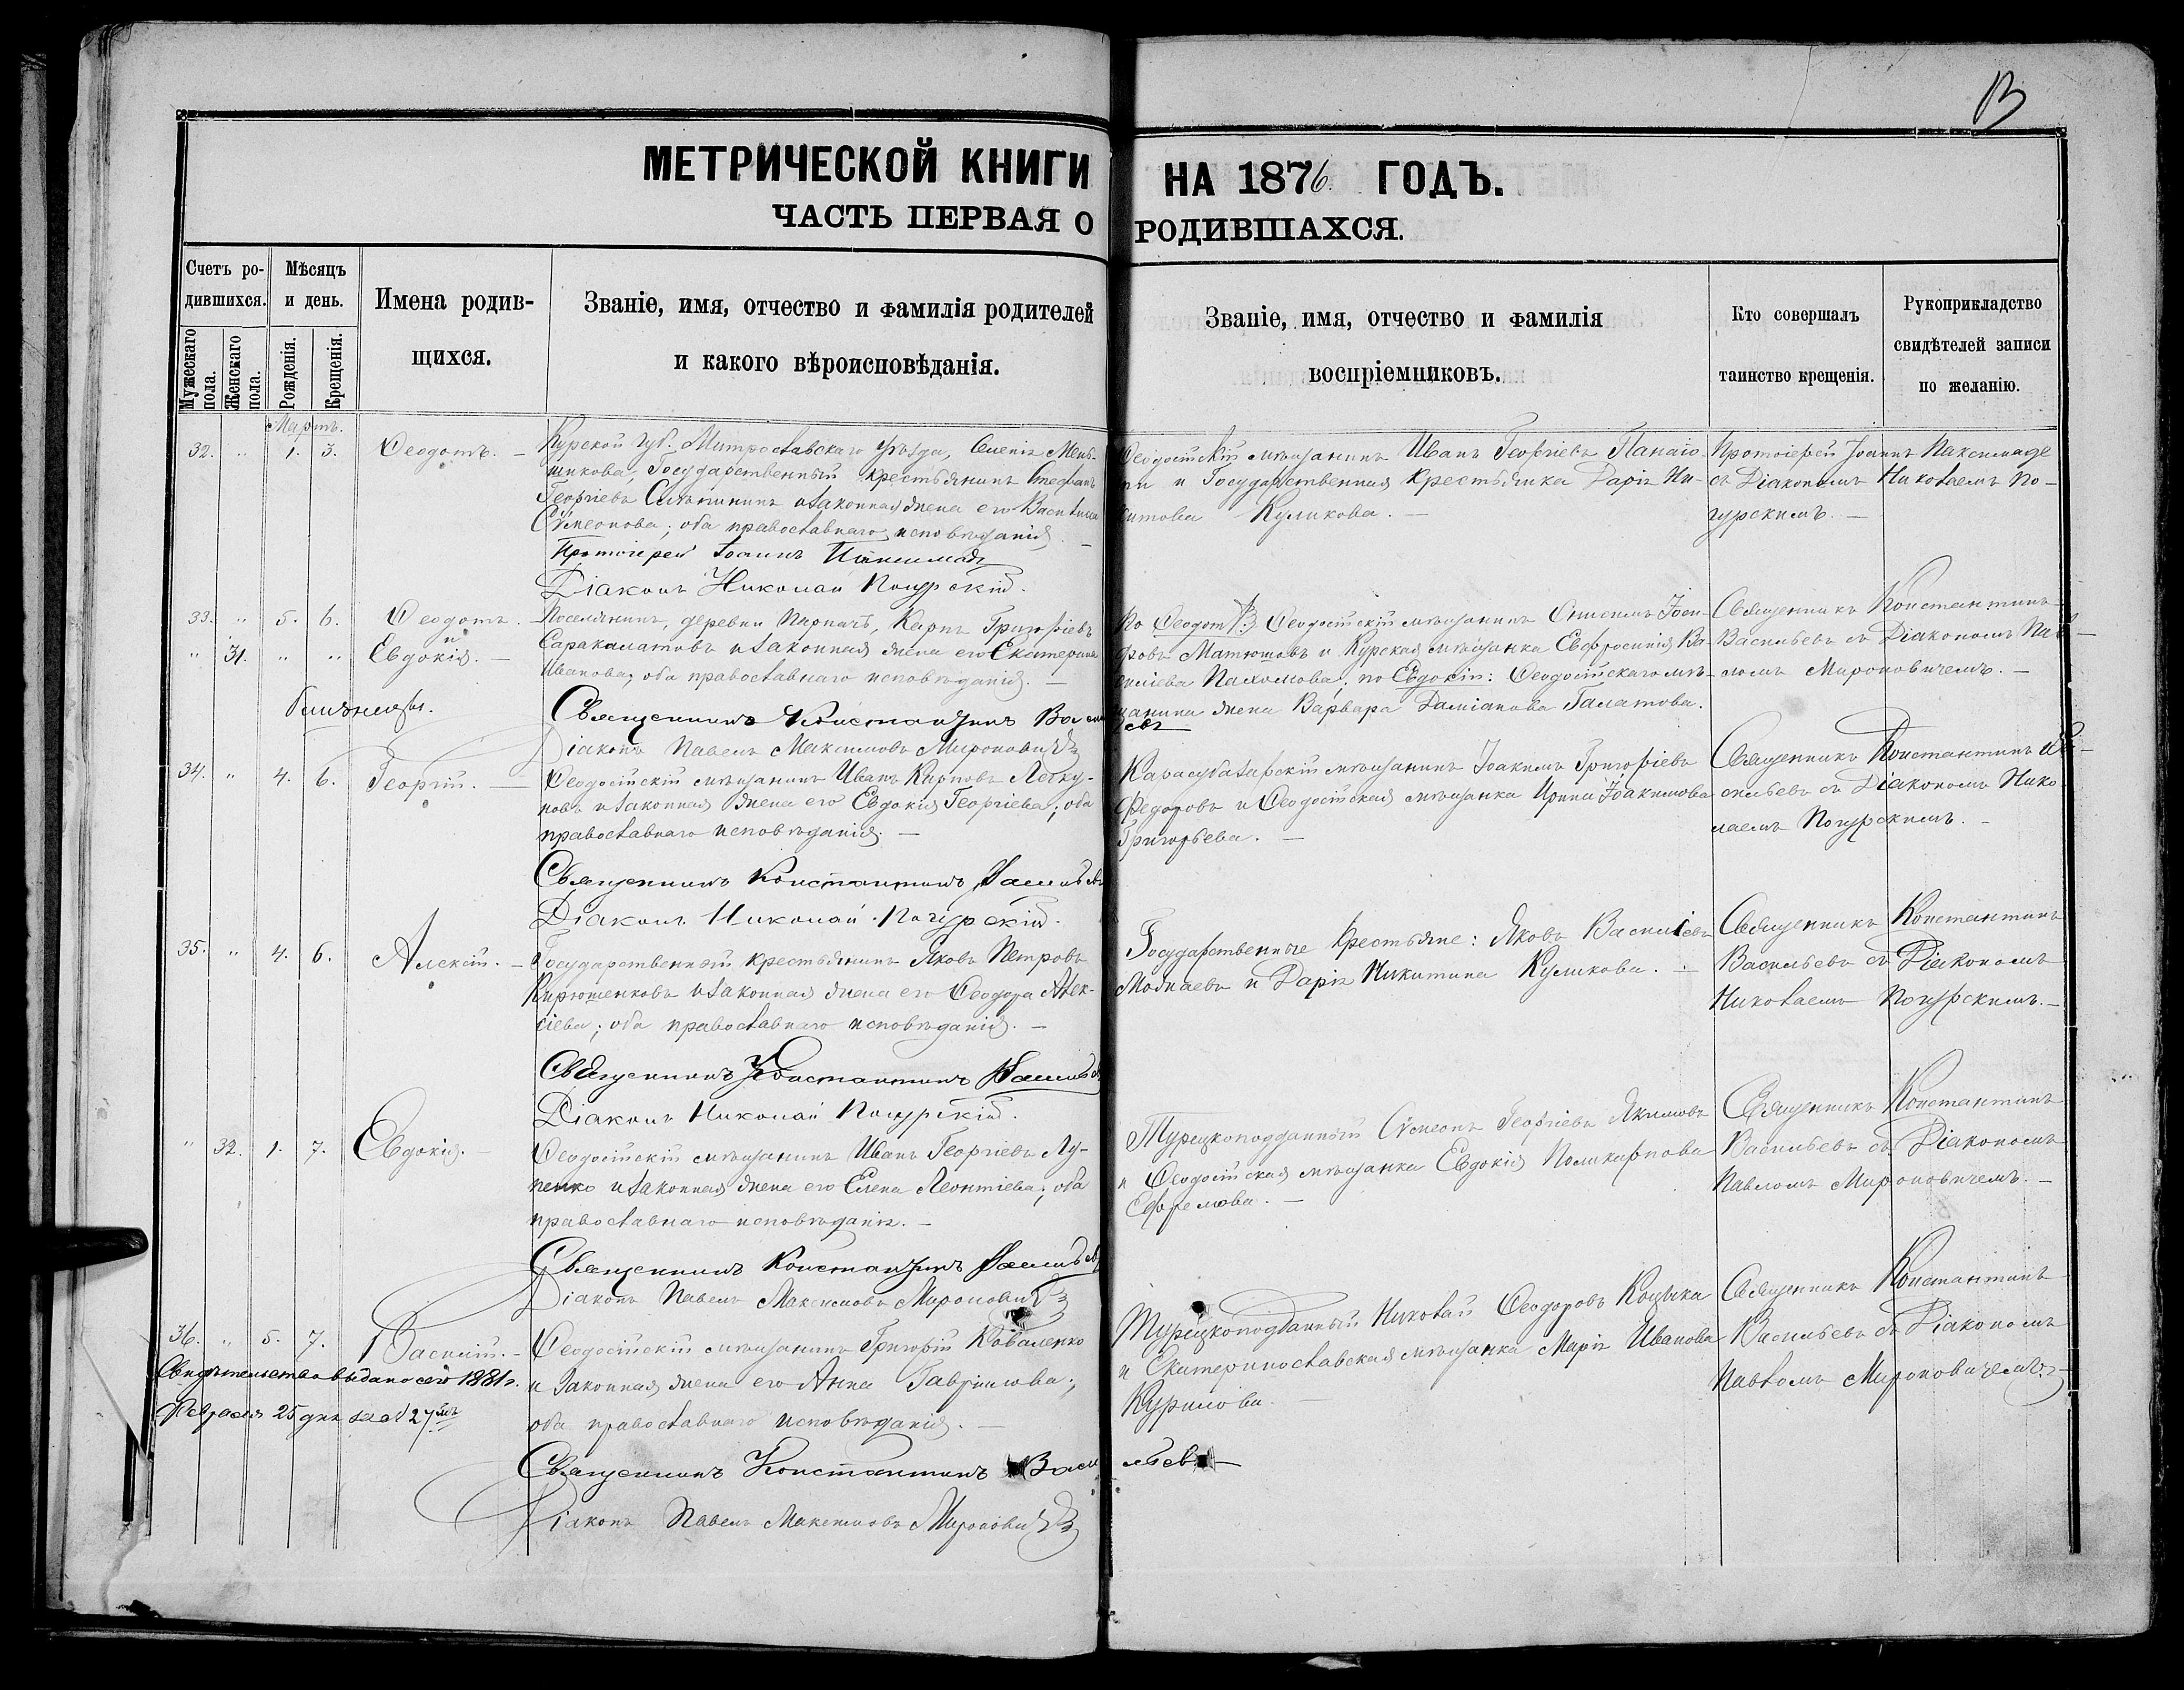 13
МЕТРИЧЕСКОЙ КНИГИ НА 1876. ГОДЪ.
ЧАСТЬ ПЕРВАЯ О РОДИВШАХСЯ.
Счетъ ро-
дившихся.
Мужескаго пола.
Женскаго пола.
Мѣсяцъ
и день.
Рожденія.
Крещенія.
Имена родив-
шихся.
Званіе, имя, отчество и фамилія родителей
и какого вѣроисповѣданія.
Званіе, имя, отчество и фамилія
воспріемниковъ.
Кто совершалъ
таинство крещенія.
Рукоприкладство
свидѣтелей записи
по желанію.
Мартъ.
32. " 1. 3. Ѳеодотъ. —
Курской губ. Уѣзда, Селенія Мень-
шикова, Государственный крестьянинъ Стефанъ
Георгіевъ и законная жена его Василиса
Сѵмеонова; оба православнаго исповѣданія. —
Протоіерей Іоаннъ
Діаконъ Николай Погурскій.
Ѳеодосійскій мѣщанинъ Иванъ Георгіевъ Панаіо-
ти и Государственная крестьянка Дарія Ни-
китова Куликова. —
Протоіерей Іоаннъ
съ Діакономъ Николаемъ По-
гурскимъ. —
33. " 5. 6. Ѳеодотъ. —
и
" 31. " " Евдокія. —
близнецы.
Поселянинъ, деревни Парпачъ, Карпъ Григорьевъ
и законная жена его Екатерина
Иванова; оба православнаго исповѣданія. —
Священникъ Константинъ Васильевъ
Діаконъ Павелъ Максимовъ Мироновичъ
По Ѳеодоту: Ѳеодосійскій мѣщанинъ Онисимъ
Матюшовъ и Курская мѣщанка Евфросинія Ва-
силіева Пахомова; по Евдокіи: Ѳеодосійскаго мѣ-
щанина жена Варвара Даміанова Галатова.
Священникъ Константинъ
Васильевъ съ Діакономъ Пав-
ломъ Мироновичемъ. —
34. " 4. 6. Георгій. —
Ѳеодосійскій мѣщанинъ Иванъ Карповъ
и законная жена его Евдокія Георгіева; оба
православнаго исповѣданія. —
Священникъ Константинъ Васильевъ
Діаконъ Николай Погурскій.
Карасубазарскій мѣщанинъ Іоакимъ Григорьевъ
Федоровъ и Ѳеодосійская мѣщанка Ирина Іоакимова
Григорьева. —
Священникъ Константинъ Ва-
сильевъ съ Діакономъ Нико-
лаемъ Погурскимъ. —
35. " 4. 6. Алексій. —
Государственный крестьянинъ Яковъ Петровъ
Кирюшенковъ и законная жена его Ѳеодора Алек-
сіева; оба православнаго исповѣданія. —
Священникъ Константинъ Васильевъ
Діаконъ Николай Погурскій.
Государственные крестьяне: Яковъ Васильевъ
и Дарія Никитина Куликова. —
Священникъ Константинъ
Васильевъ съ Діакономъ
Николаемъ Погурскимъ. —
" 32. 1. 7. Евдокія. —
Ѳеодосійскій мѣщанинъ Иванъ Георгіевъ Лу-
ценко и законная жена его Елена Леонтіева; оба
православнаго исповѣданія. —
Священникъ Константинъ Васильевъ
Діаконъ Павелъ Максимовъ Мироновичъ
Турецкоподданный Сѵмеонъ Георгіевъ Якимовъ
и Ѳеодосійская мѣщанка Евдокія Поликарпова
Ефремова. —
Священникъ Константинъ
Васильевъ съ Діакономъ
Павломъ Мироновичемъ. —
36. " 5. 7. Василій. —
Свидѣтельство выдано сего 1881 г.
Февраля 25 дня за № 27мъ
Ѳеодосійскій мѣщанинъ Григорій Коваленко
и законная жена его Анна Гавріилова;
оба православнаго исповѣданія. —
Священникъ Константинъ Васильевъ —
Діаконъ Павелъ Максимовъ Мироновичъ
Турецкоподданный Николай Ѳеодоровъ
и Екатеринославская мѣщанка Марія Иванова
Курилова. —
Священникъ Константинъ
Васильевъ съ Діакономъ
Павломъ Мироновичемъ. —